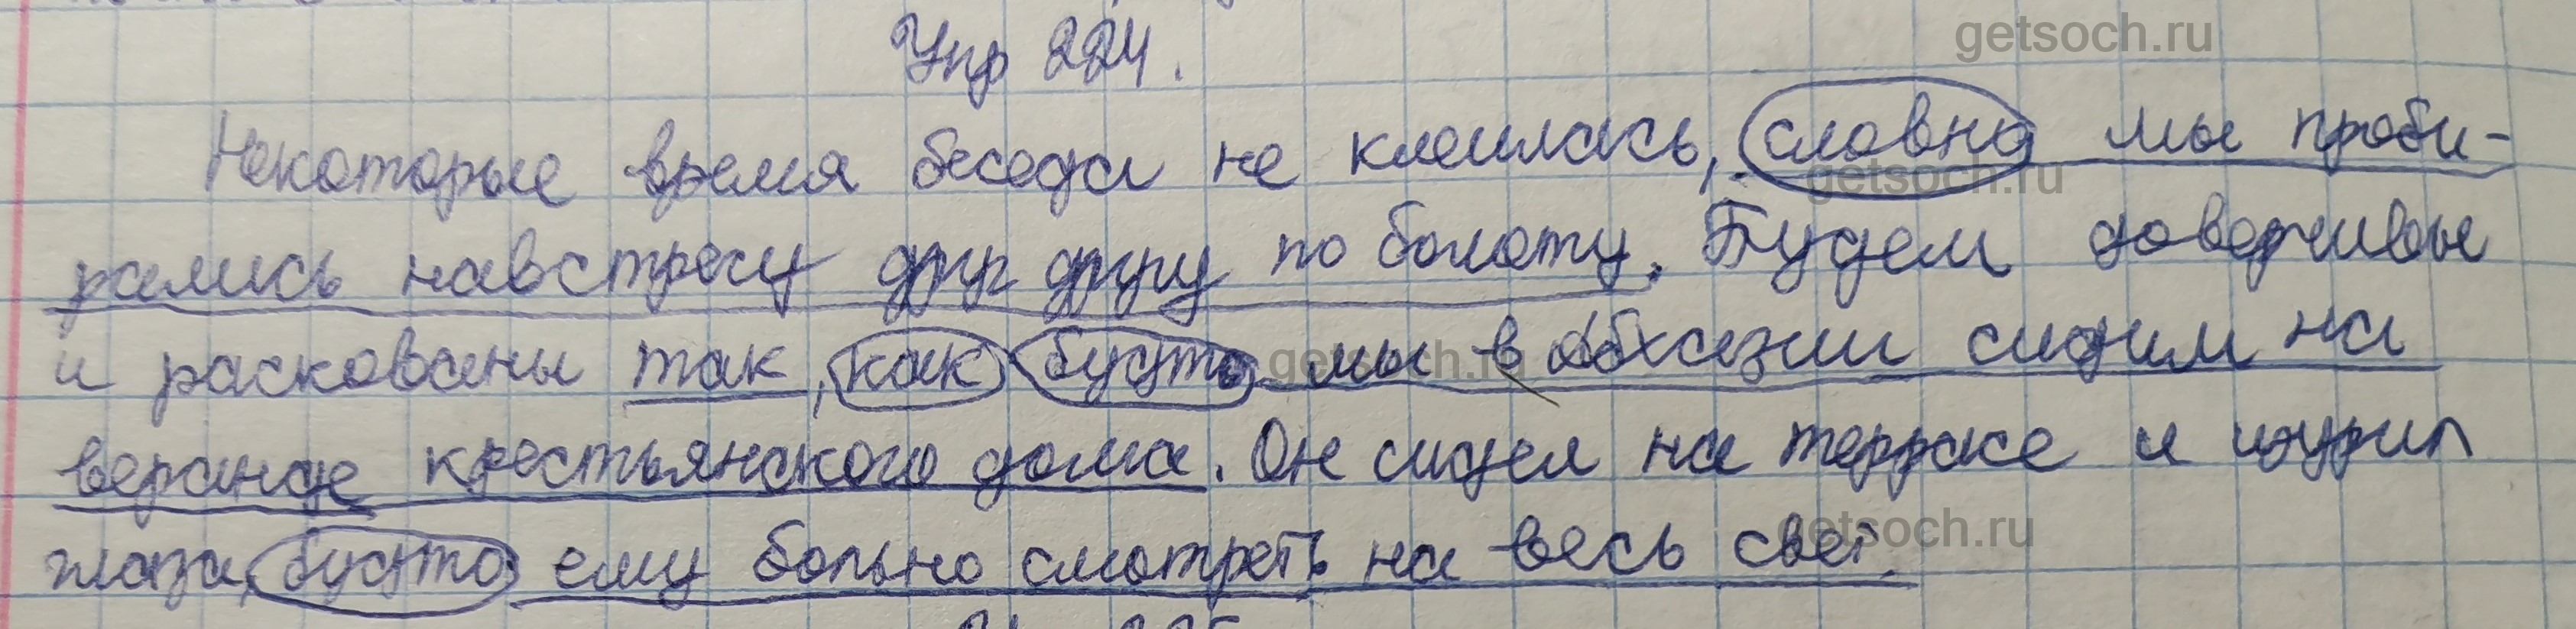 Упр 224.
Некоторые время беседа не клеилась, словно мы проби-
рались навстречу друг другу по болоту. Будем доверчивы
и раскованы так, как будто мы в Абхазии сидим на
веранде крестьянского дома. Он сидел на террасе и щурил
глаза, будто ему больно смотреть на весь свет.
getsoch.ru
getsoch.ru
getsoch.ru
getsoch.ru